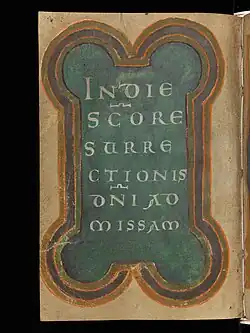 INDIE
SCORE
SURRE
CTIONIS
DNI AD
MISSAM